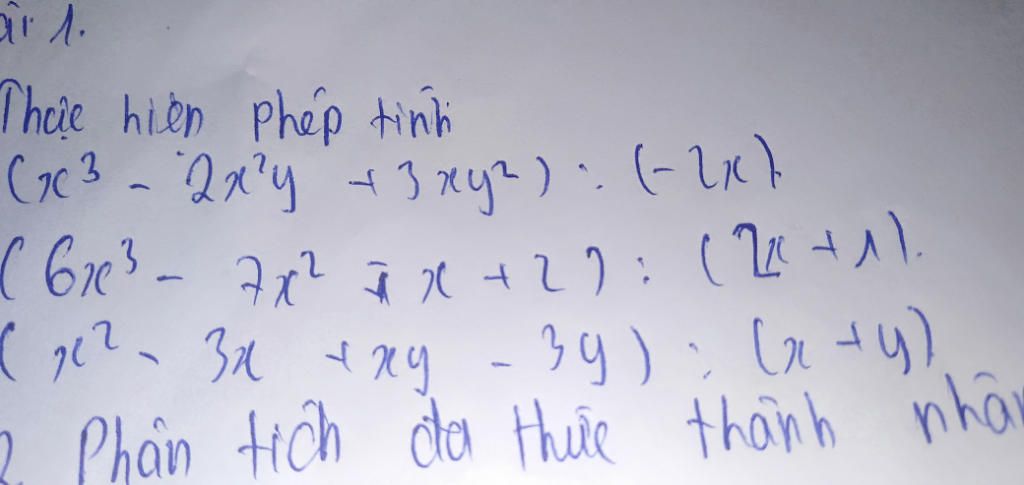 ài 1.
Thực hiện phép tính
(x³ - 2x²y + 3xy²) : (-2x)
(6x³ - 7x² - x + 2) : (2x + 1).
(x² - 3x + xy - 3y) : (x + y)
2 Phân tích đa thức thành nhân